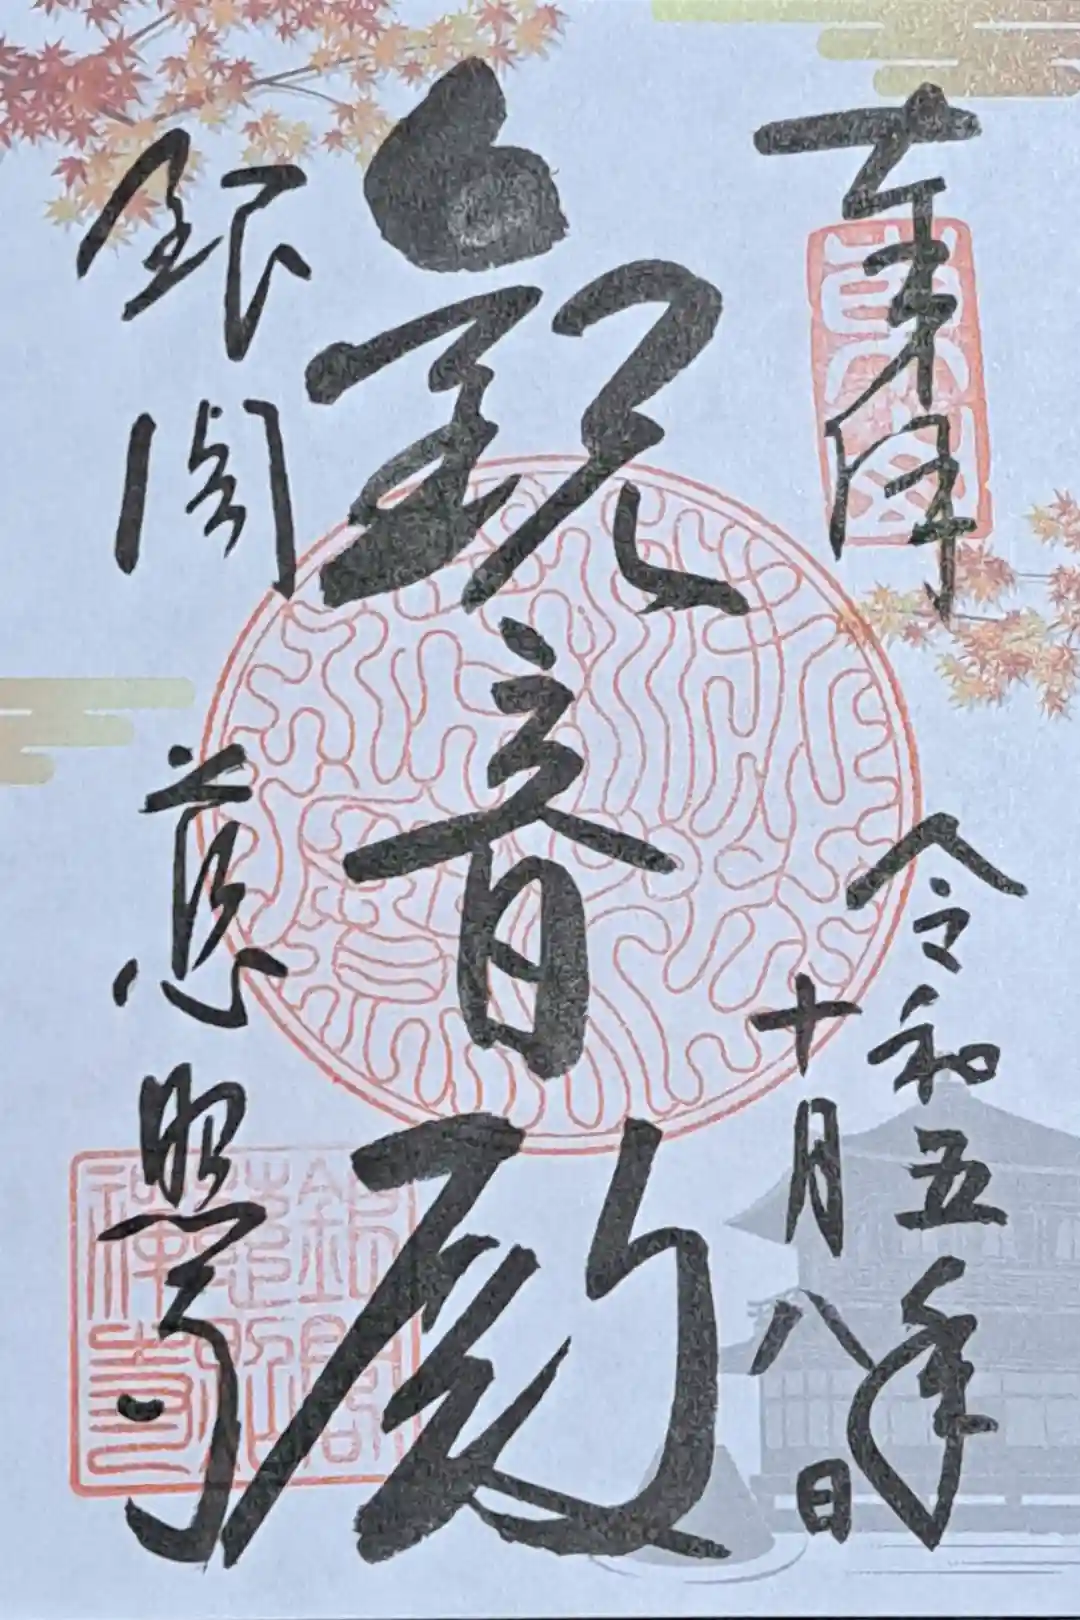 奉拝
令和五年
十月八日
観音殿
銀閣
慈照寺